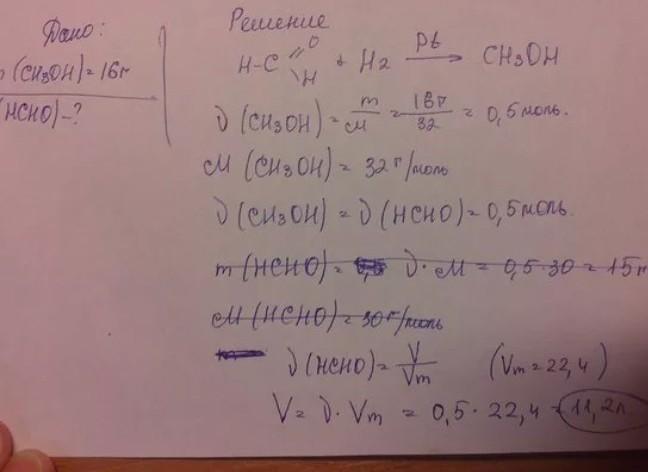 Дано:
(CH3OH)=16г
(HCHO)-?
Решение
H-C O H + H2 → CH3OH
ν(CH3OH) = m/M = 16г/32 = 0,5 моль.
M(CH3OH) = 32 г/моль
ν(CH3OH) = ν(HCHO) = 0,5 моль.
m(HCHO) = ν·M = 0,5·30 = 15г
M(HCHO) = 30 г/моль
ν(HCHO) = V/Vm (Vm = 22,4)
V = ν·Vm = 0,5·22,4 = 11,2л.